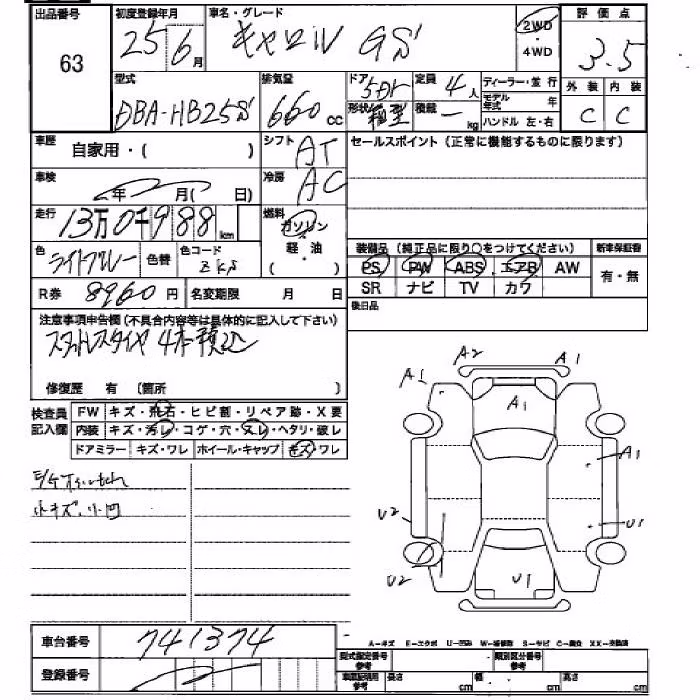 出品番号 初度登録年月 車名・グレード 2WD 評価点
63 25年6月 キャロル GS ・4WD 3.5
型式 排気量 ドア 5Dr 定員 4人 ディーラー・並行 外装 内装
DBA-HB25S 660cc 形状 箱型 積載 ー kg モデル年式 年 ハンドル 左・右 C C
車歴 自家用・( ) シフト AT セールスポイント(正常に機能するものに限ります)
車検 年 月( 日) 冷房 AC
走行 13万0千988km 燃料 ガソリン
軽・油
( )
色 ライトブルー 色替 色コード 装備品(純正品に限り○をつけてください) 新車保証書
PS PW ABS エアB AW 有・無
R券 8960円 名変期限 月 日 SR ナビ TV カワ
後日品
注意事項申告欄(不具合内容等は具体的に記入して下さい)
スタットレスタイヤ 4本積込
修復歴 有 (箇所 )
A2 A1
A1
A1
検査員 FW キズ・飛石・ヒビ割・リペア跡・X要
記入欄 内装 キズ・汚レ・コゲ・穴・スレ・ヘタリ・破レ
ドアミラー キズ・ワレ ホイール・キャップ キズ・ワレ
A1
小キズ、小凹
U2 U1
U2 U1
車台番号 741374
A−キズ E−エクボ U−凹み W−補修跡 S−サビ C−腐食 XX−交換済
登録番号
型式指定番号 参考 類別区分番号 参考
車庫証明用 参考 長さ cm 幅 cm 高さ cm